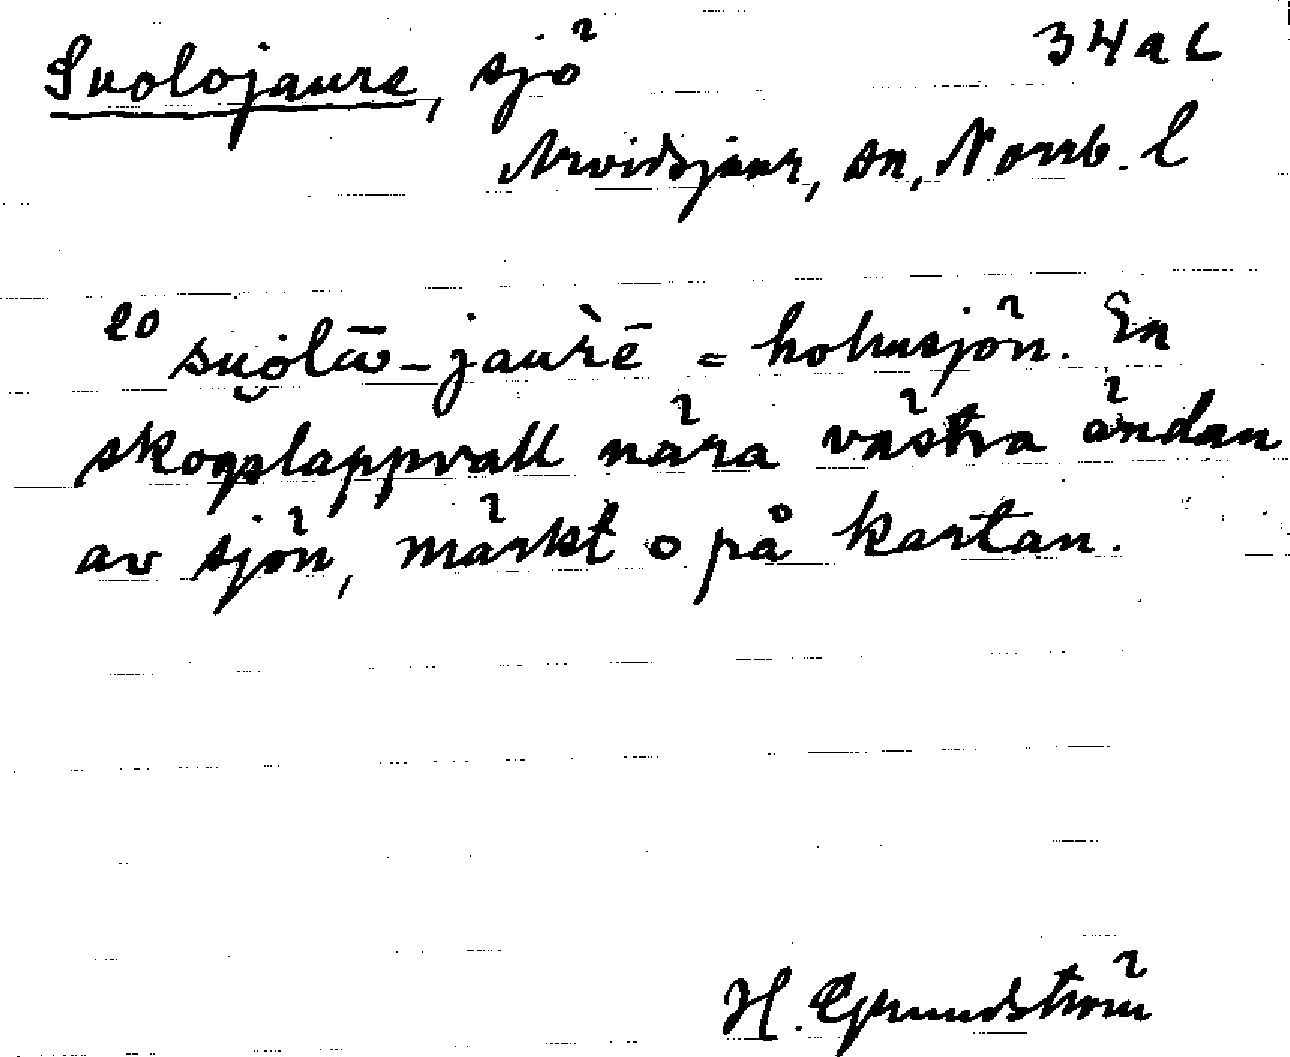 Suolojaure, sjö 34 a c
Arvidsjaur, sn, Norrb. l
20 suo̯lū-jaùrē = holmsjön. En
skogslappvall nära västra ändan
av sjön, märkt o på kartan.
H. Grundström